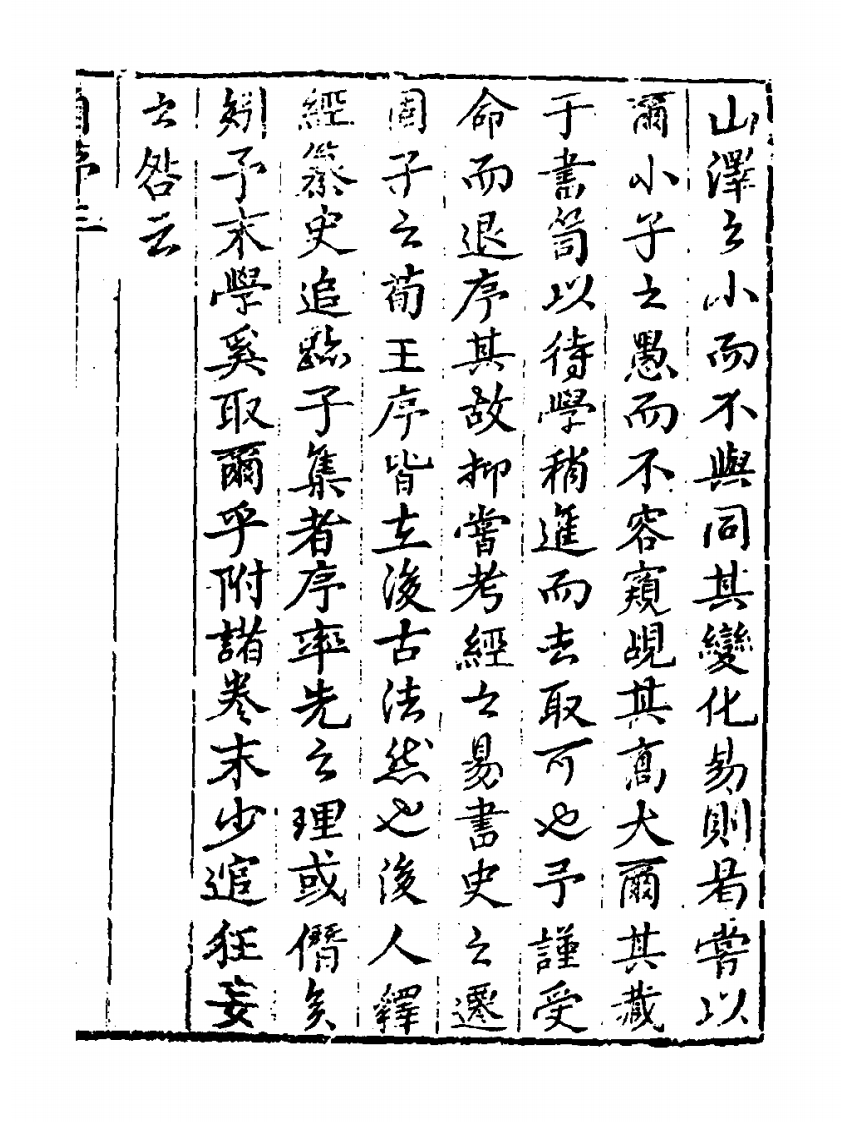 山澤之小而不與同其變化易則若嘗以
爾小子之愚而不容窺覘其高大爾其藏
于書笥以待學稍進而去取可也予謹受
命而退序其故抑嘗考經之易書史之遷
固子之荀王序皆在後古法然也後人釋
經纂史追踪子集者序率先之理或僭矣
矧予末學奚取爾乎附諸卷末少逭狂妄
之咎云
自序三